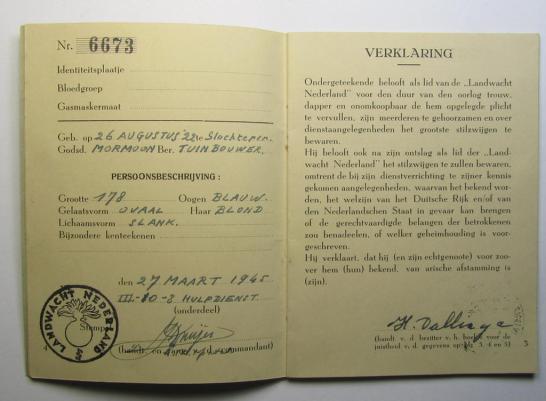 Nr. 6673
Identiteitsplaatje
Bloedgroep
Gasmaskermaat
Geb. op 26 AUGUSTUS '22 te Slochteren.
Godsd. MORMOON Ber. TUINBOUWER.
PERSOONSBESCHRIJVING :
Grootte 178 Oogen BLAUW.
Gelaatsvorm OVAAL Haar BLOND
Lichaamsvorm SLANK.
Bijzondere kenteekenen
den 27 MAART 1945
III-10-8 HULPDIENST
(onderdeel)
Stempel
(handt. en v. d. commandant)
LANDWACHT NEDERLAND
VERKLARING
Ondergeteekende belooft als lid van de „Landwacht
Nederland" voor den duur van den oorlog trouw,
dapper en onomkoopbaar de hem opgelegde plicht
te vervullen, zijn meerderen te gehoorzamen en over
dienstaangelegenheden het grootste stilzwijgen te
bewaren.
Hij belooft ook na zijn ontslag als lid der „Land-
wacht Nederland" het stilzwijgen te zullen bewaren,
omtrent de bij zijn dienstverrichting te zijner kennis
gekomen aangelegenheden, waarvan het bekend wor-
den, het welzijn van het Duitsche Rijk en/of van
den Nederlandschen Staat in gevaar kan brengen
of de gerechtvaardigde belangen der betrokkenen
zou benadeelen, of welker geheimhouding is voor-
geschreven.
Hij verklaart, dat hij (en zijn echtgenoote) voor zoo-
ver hem (hun) bekend, van arische afstamming is
(zijn).
H. Dallinga
(handt. v. d. bezitter v. h. boekje voor de
juistheid v. d. gegevens op blz 3, 4 en 5)
5